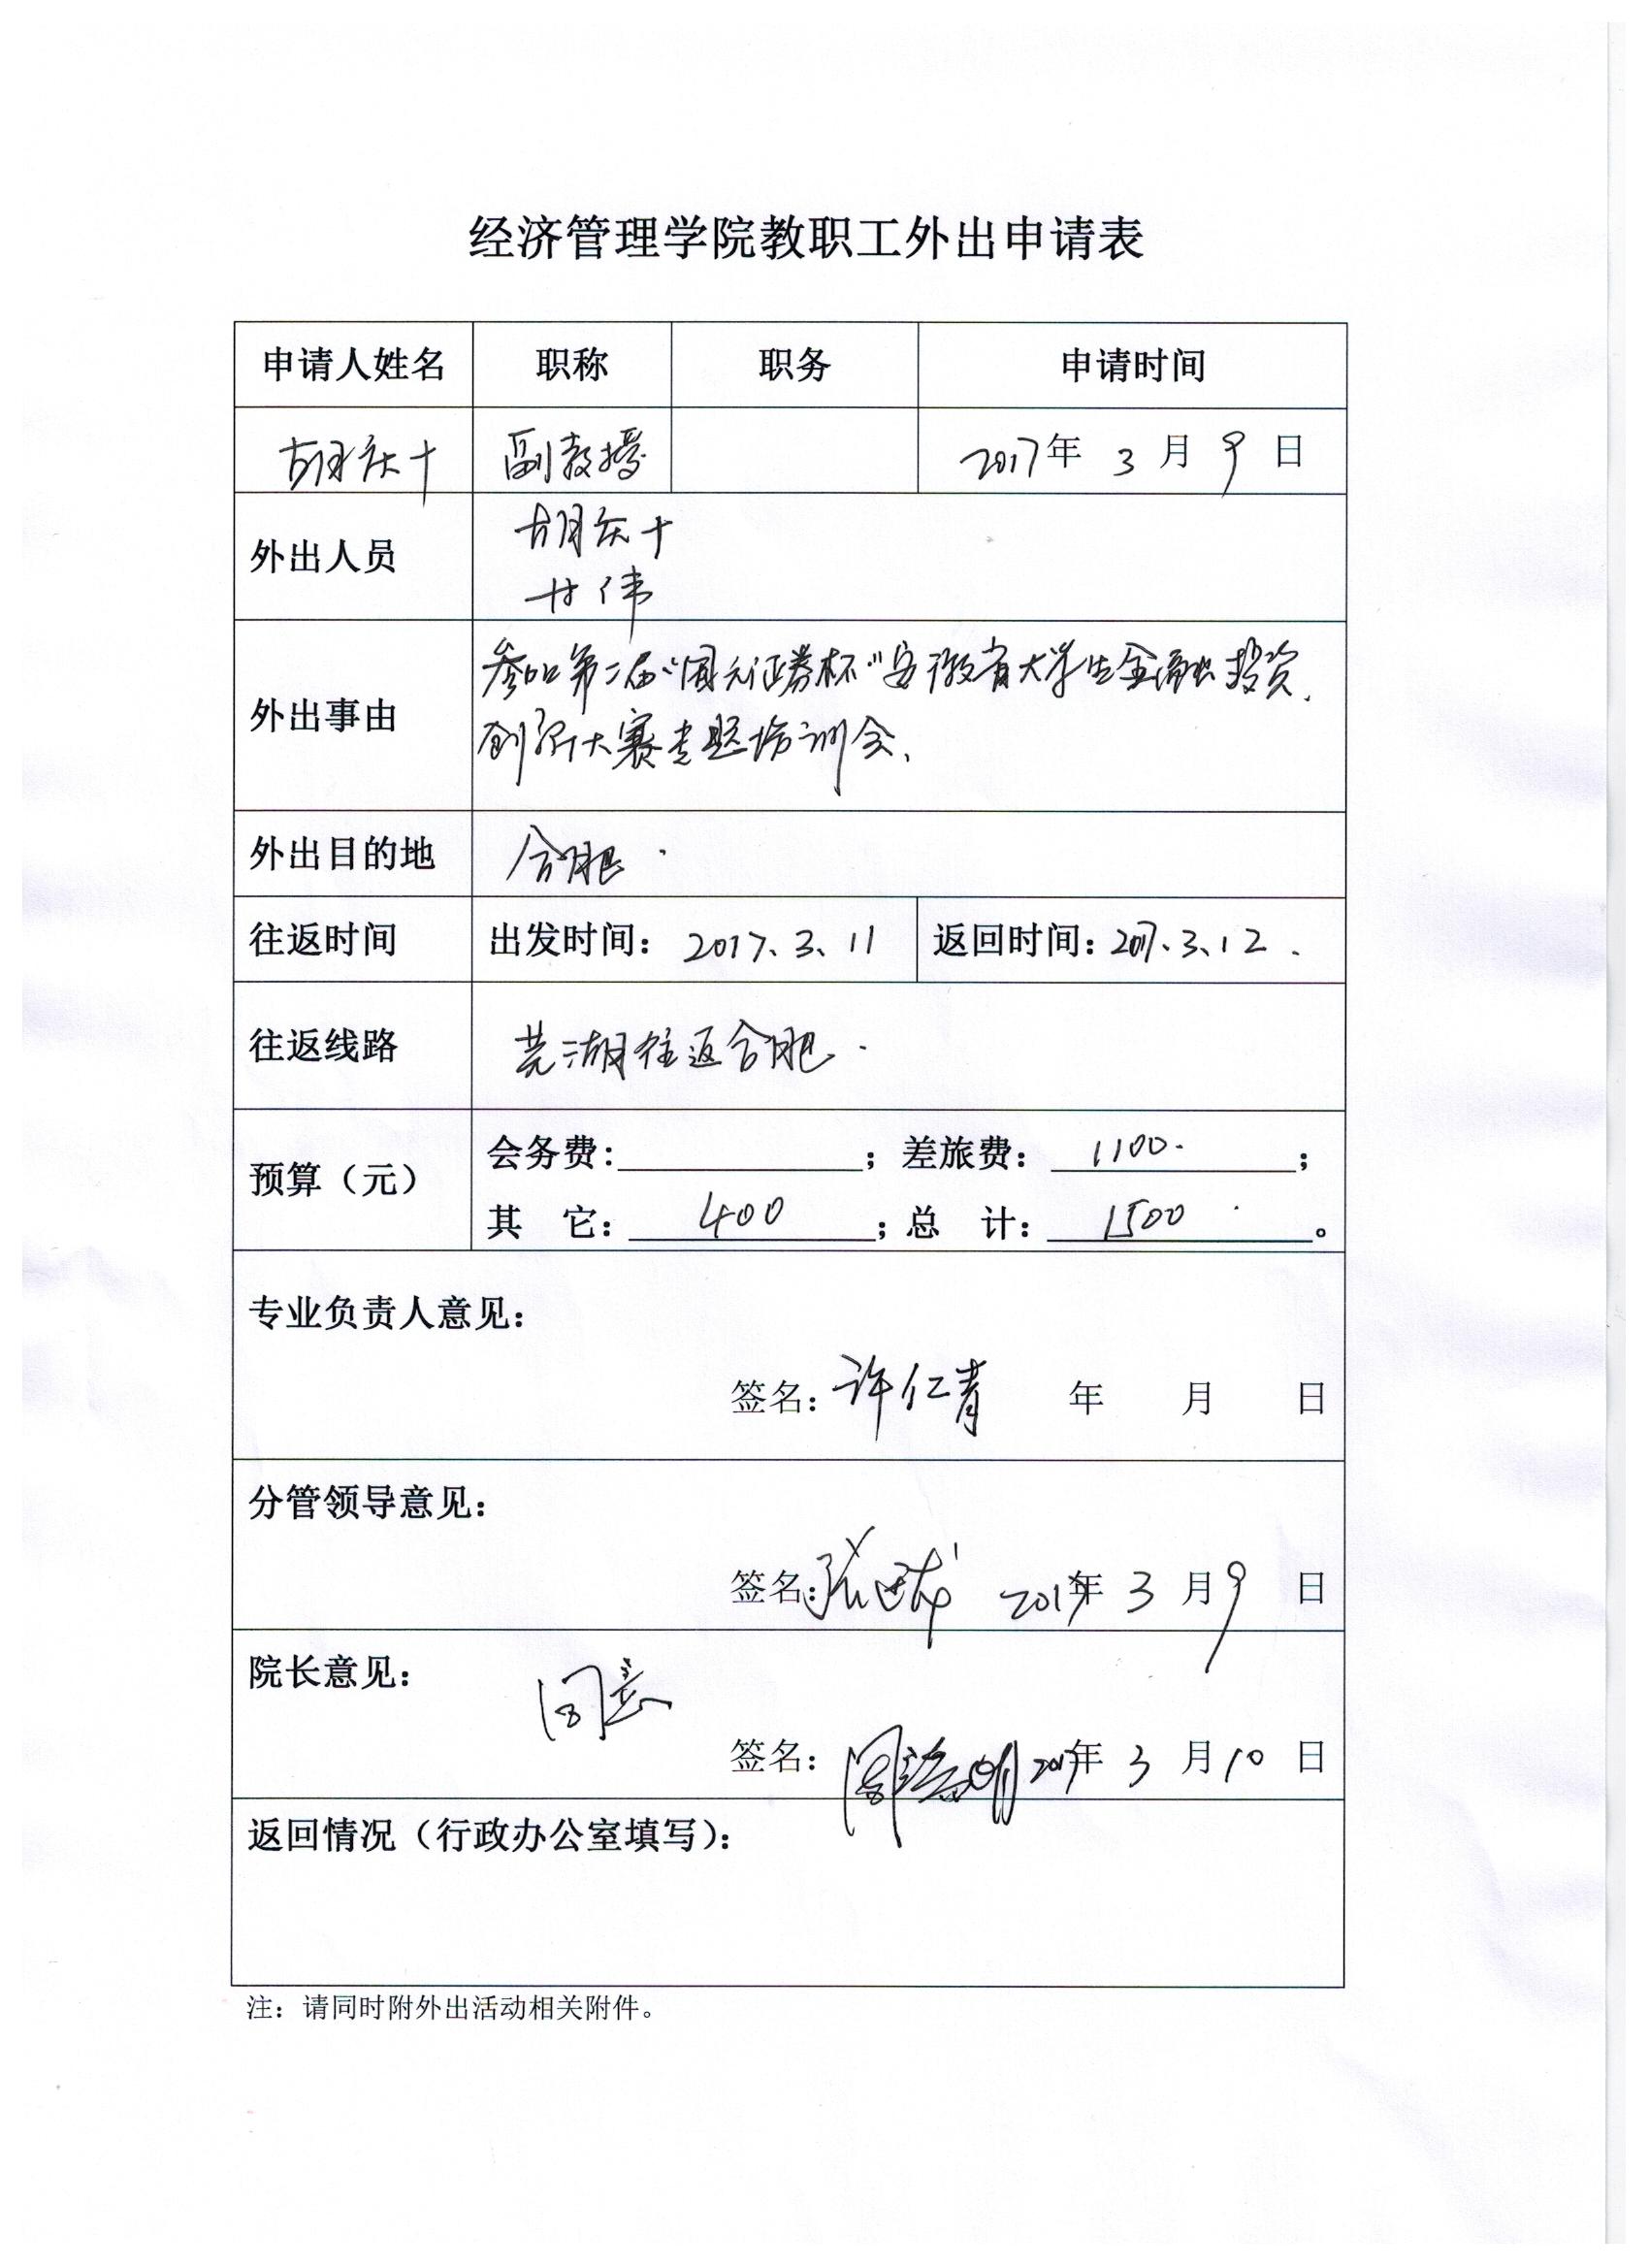 经济管理学院教职工外出申请表
申请人姓名 职称 职务 申请时间
胡庆十 副教授 2017年 3 月 9 日
外出人员 胡庆十
甘伟
外出事由 参加第二届“国元证券杯”安徽省大学生金融投资
创新大赛专题培训会、
外出目的地 合肥.
往返时间 出发时间: 2017、3、11 返回时间: 2017、3、12.
往返线路 芜湖往返合肥.
预算（元） 会务费: ; 差旅费: 1100. ;
其 它: 400 ; 总 计: 1500 。
专业负责人意见:
签名: 许仁青 年 月 日
分管领导意见:
签名: 2017年 3 月 9 日
院长意见: 同意
签名: 2017年 3 月 10 日
返回情况（行政办公室填写）:
注: 请同时附外出活动相关附件。